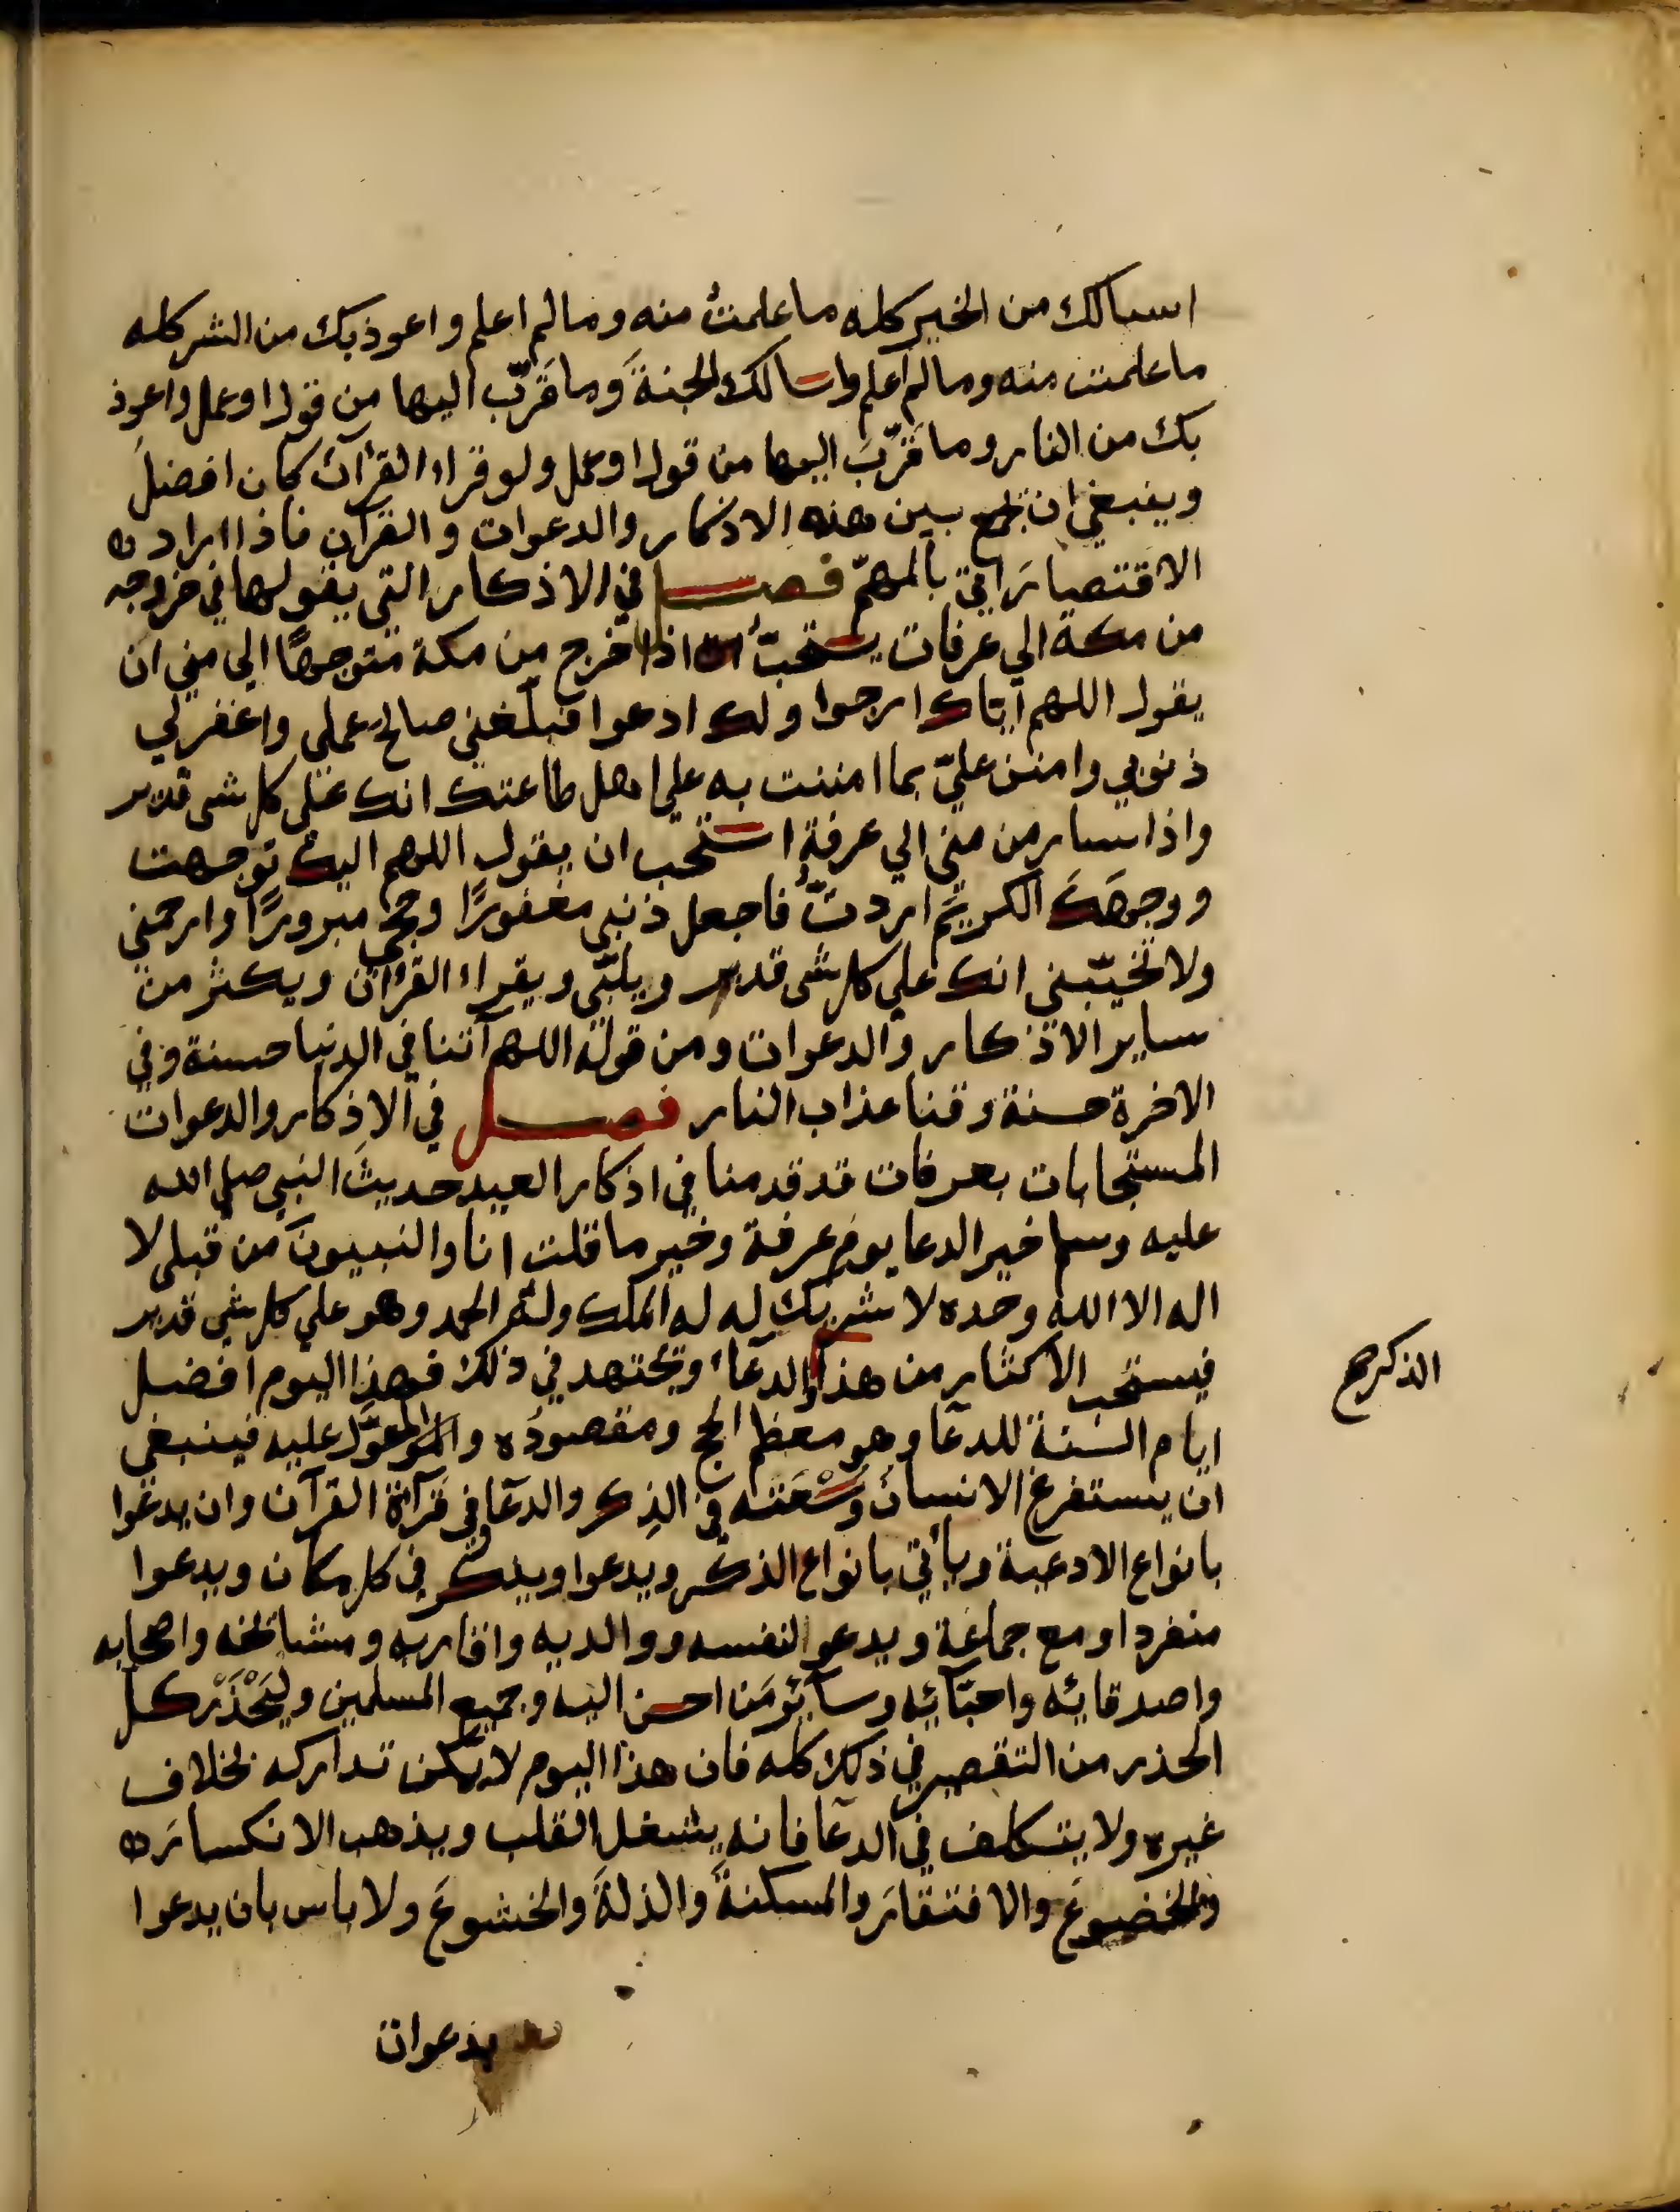 اسالك من الخير كله ما علمتُ منه وما لم اعلم واعوذ بك من الشر كله
ما علمت منه وما لم اعلم واسالك الجنةَ وما قَرّب اليها من قول او عمل واعوذ
بك من النار وما قَرّبَ اليها من قول او عمل ولو قراء القرآن كان افضلَ
وينبغي ان يجمع بين هذه الاذكار والدعوات والقرآن فاذا اراد
الاقتصارَ اتي بالمهمّ فصل في الاذكار التي يقولها في خروجه
من مكة الي عرفات يستحبّ اذا خرج من مكة متوجهًا الي مني ان
يقول اللهم اياك ارجوا ولك ادعوا فبلّغني صالحَ عملي واغفر لي
ذنوبي وامنن عليّ بما مننت به علي اهل طاعتك انك علي كل شى قدير
واذا سار من مني الي عرفة استحب ان يقول اللهم اليك توجهت
ووجهَكَ الكريمَ اردتُ فاجعل ذنبي مغفورًا وحجي مبرورًا وارحمني
ولا تخيّبني انك علي كل شى قدير ويلبّي ويقراء القرآن ويكثر من
ساير الاذكار والدعوات ومن قوله اللهم آتنا في الدنيا حسنة وفي
الاخرة حسنة وقنا عذاب النار فصل في الاذكار والدعوات
المستجابات بعرفات قد قدمنا في اذكار العيد حديثَ النبي صلي الله
عليه وسلم خير الدعا يوم عرفة وخير ما قلت انا والنبيونَ من قبلي لا
اله الا الله وحده لا شريك له له الملك وله الحمد وهو علي كل شي قدير
فيستحب الاكثار من هذا والدعاء ويجتهد في ذلك فهذا اليوم افضل
الذكر صح
ايام السنة للدعا وهو معظم الحج ومقصودُه والمعوّل عليه فينبغي
ان يستفرغ الانسانُ وُسْعَته في الذِكر والدعا وفي قرآة القرآن وان يدعُوا
بانواع الادعية ويأتي بانواع الذكر ويدعوا ويذكر في كل مكان ويدعوا
منفردا ومع جماعة ويدعو لنفسه ووالديه واقاربه ومشائخه واصحابه
واصدقائه واحبّائه وسائر مَن احسن اليه وجميع المسلمين وليَحْذَرْ كل
الحذر من التقصير في ذلك كله فان هذا اليوم لا يمكن تداركه بخلاف
غيره ولا يتكلف في الدعآ فانه يشغل القلب ويذهب الانكسارَ
والخضوعَ والافتقارَ والمسكنةَ والذلةَ والخشوعَ ولا باس بان يدعوا
بدعوات